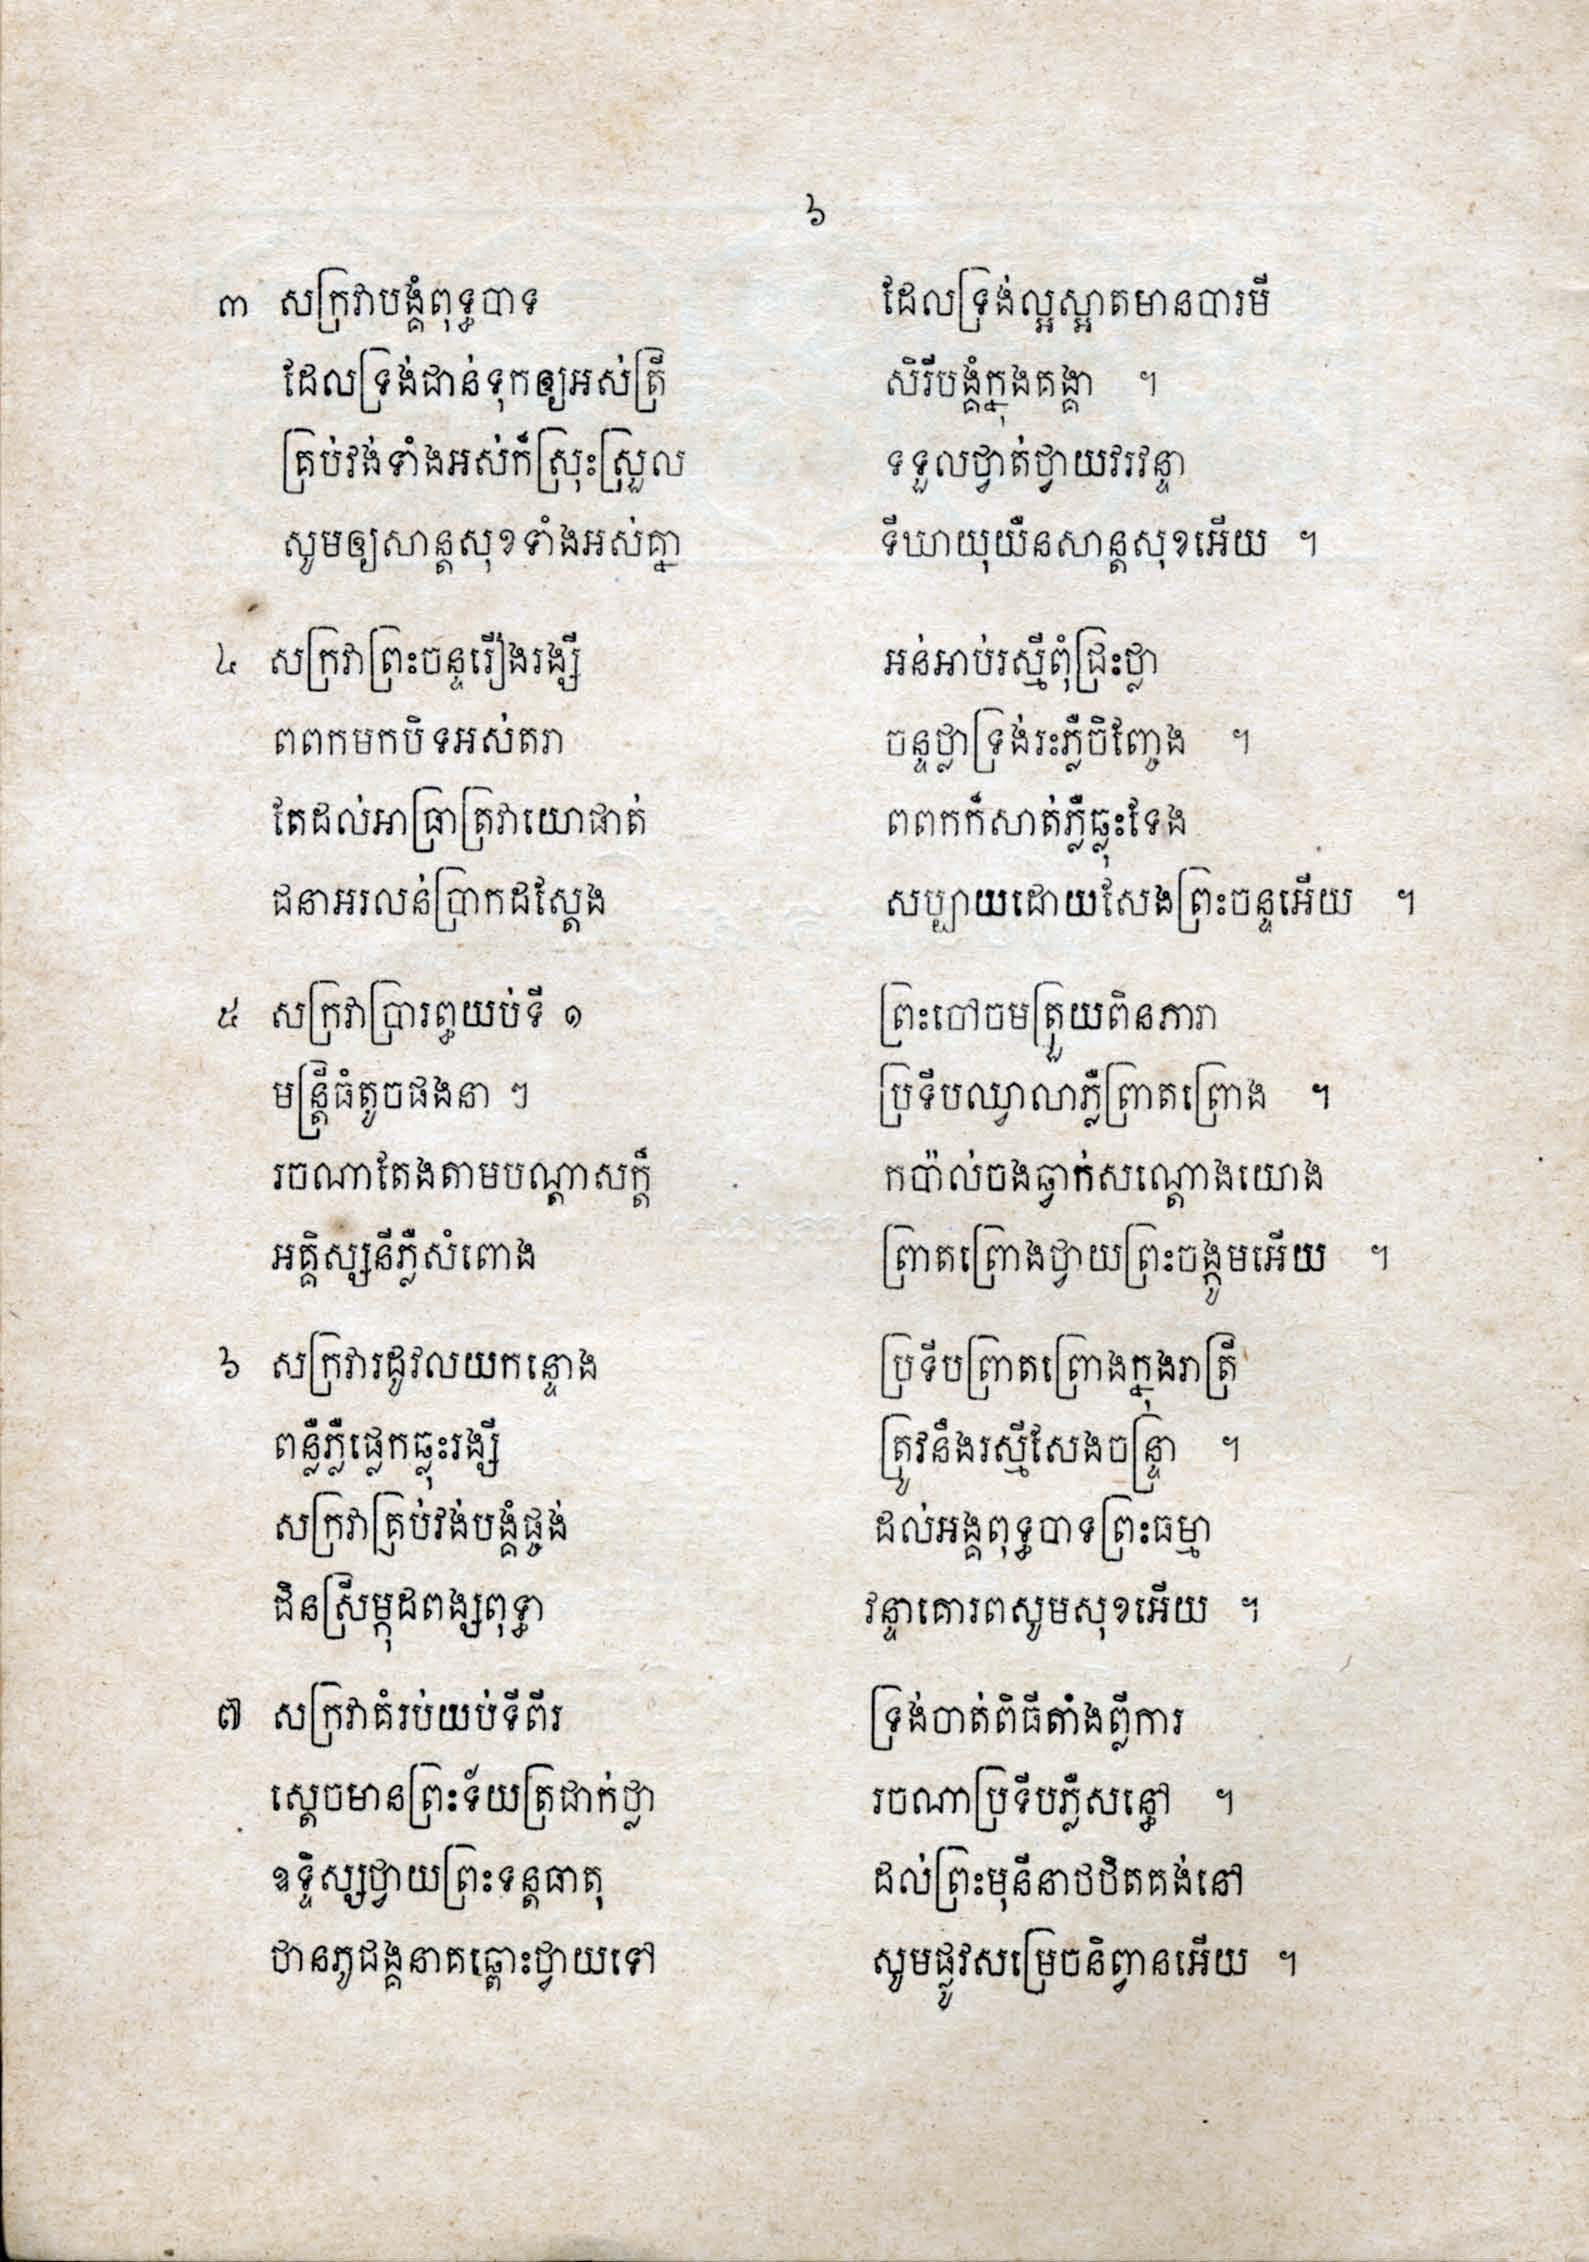 ៦
៣ សក្រវាបង្គំពុទ្ធបាទ ដែលទ្រង់ល្អស្អាតមានបារមី
ដែលទ្រង់ជាន់ទុកឲ្យអស់ត្រី សិរីបង្គំក្នុងគង្គា ។
គ្រប់វង់ទាំងអស់ក៏ស្រុះស្រួល ទទួលថ្វាត់ថ្វាយវរវន្ទា
សូមឲ្យសាន្តសុខទាំងអស់គ្នា ទីឃាយុយឺនសាន្តសុខអើយ ។
៤ សក្រវាព្រះចន្ទរឿងរង្សី អន់អាប់រស្មីពុំជ្រះថ្លា
ពពកមកបិទអស់តរា ចន្ទថ្លាទ្រង់រះភ្លឺចិញ្ចែង ។
តែដល់អាធ្រាត្រវាយោផាត់ ពពកក៏សាត់ភ្លឺធ្លុះទែង
ជនាអរលន់ប្រាកដស្តែង សប្បាយដោយសែងព្រះចន្ទអើយ ។
៥ សក្រវាប្រារព្ធយប់ទី ១ ព្រះចៅចមត្រួយពិនភារា
មន្ត្រីធំតូចផងនា ៗ ប្រទីបឈ្វាលាភ្លឺព្រាតព្រោង ។
រចណាតែងតាមបណ្តាសក្តិ៍ កប៉ាល់ចងធ្វាក់សណ្តោងយោង
អគ្គិស្សនីភ្លឺសំពោង ព្រាតព្រោងថ្វាយព្រះចង្កូមអើយ ។
៦ សក្រវារដូវលយកន្ទោង ប្រទីបព្រាតព្រោងក្នុងរាត្រី
ពន្លឺភ្លឺផ្លេកធ្លុះរង្សី ត្រូវនឹងរស្មីសែងចន្ទ្រា ។
សក្រវាគ្រប់វង់បង្គំផ្ចង់ ដល់អង្គពុទ្ធបាទព្រះធម្មា
ជិនស្រីម្កុដពង្សពុទ្ធា វន្ទាគោរពសូមសុខអើយ ។
៧ សក្រវាគំរប់យប់ទីពីរ ទ្រង់បាត់ពិធីតាំងព្លីការ
ស្តេចមានព្រះទ័យត្រជាក់ថ្លា រចណាប្រទីបភ្លឺសន្ធៅ ។
ឧទ្ទិស្សថ្វាយព្រះទន្តធាតុ ដល់ព្រះមុនីនាថឋិតគង់នៅ
ឋានភូជង្គនាគឆ្ពោះថ្វាយទៅ សូមផ្លូវសម្រេចនិព្វានអើយ ។